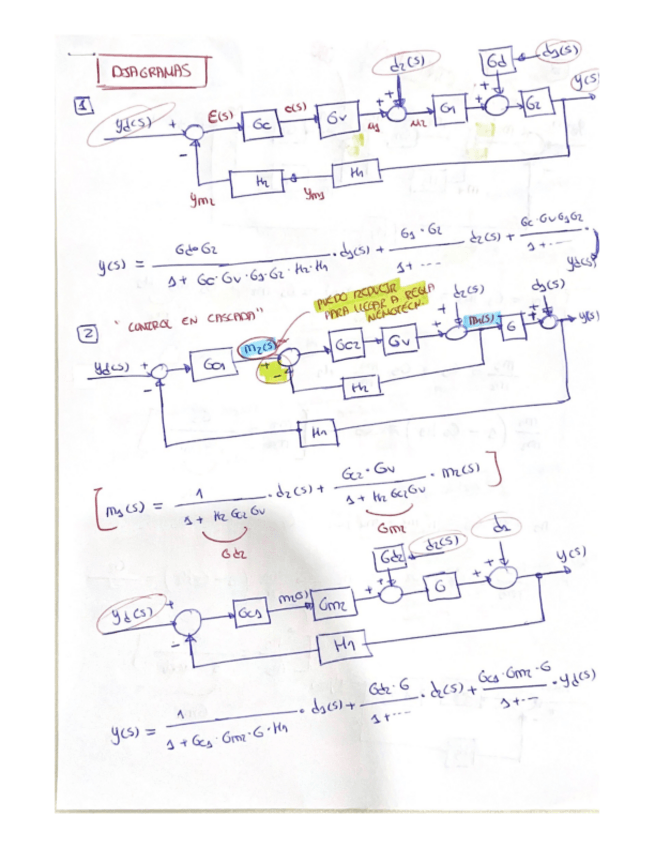 DIAGRAMAS
1
yd(s) + - E(s) Gc c(s) Gv u1 + + d2(s) u2 G1 + + Gd d1(s) G2 y(s)
ym2 H2 ym1 H1
y(s) = Gd·G2 / 1 + Gc·Gv·G1·G2·H2·H1 · d1(s) + G1·G2 / 1+···· d2(s) + Gc·GvG1G2 / 1+···· · yd(s)
2 "CONTROL EN CASCADA"
PUEDO REDUCIR
PARA LLEGAR A REGLA
NEMOTECN.
yd(s) + - Gc1 m2(s) + - Gc2 Gv + + d2(s) m1(s) G + + d1(s) y(s)
H2
H1
[ m1(s) = 1 / 1 + H2 Gc2 Gv · d2(s) + Gc2·Gv / 1 + H2 Gc2 Gv · m2(s) ]
Gd2 Gm2
yd(s) + - Gc1 m2(s) Gm2 + + Gd2 d2(s) G + + d1 y(s)
H1
y(s) = 1 / 1 + Gc1·Gm2·G·H1 · d1(s) + Gd2·G / 1+···· · d2(s) + Gc1·Gm2·G / 1+···· · yd(s)